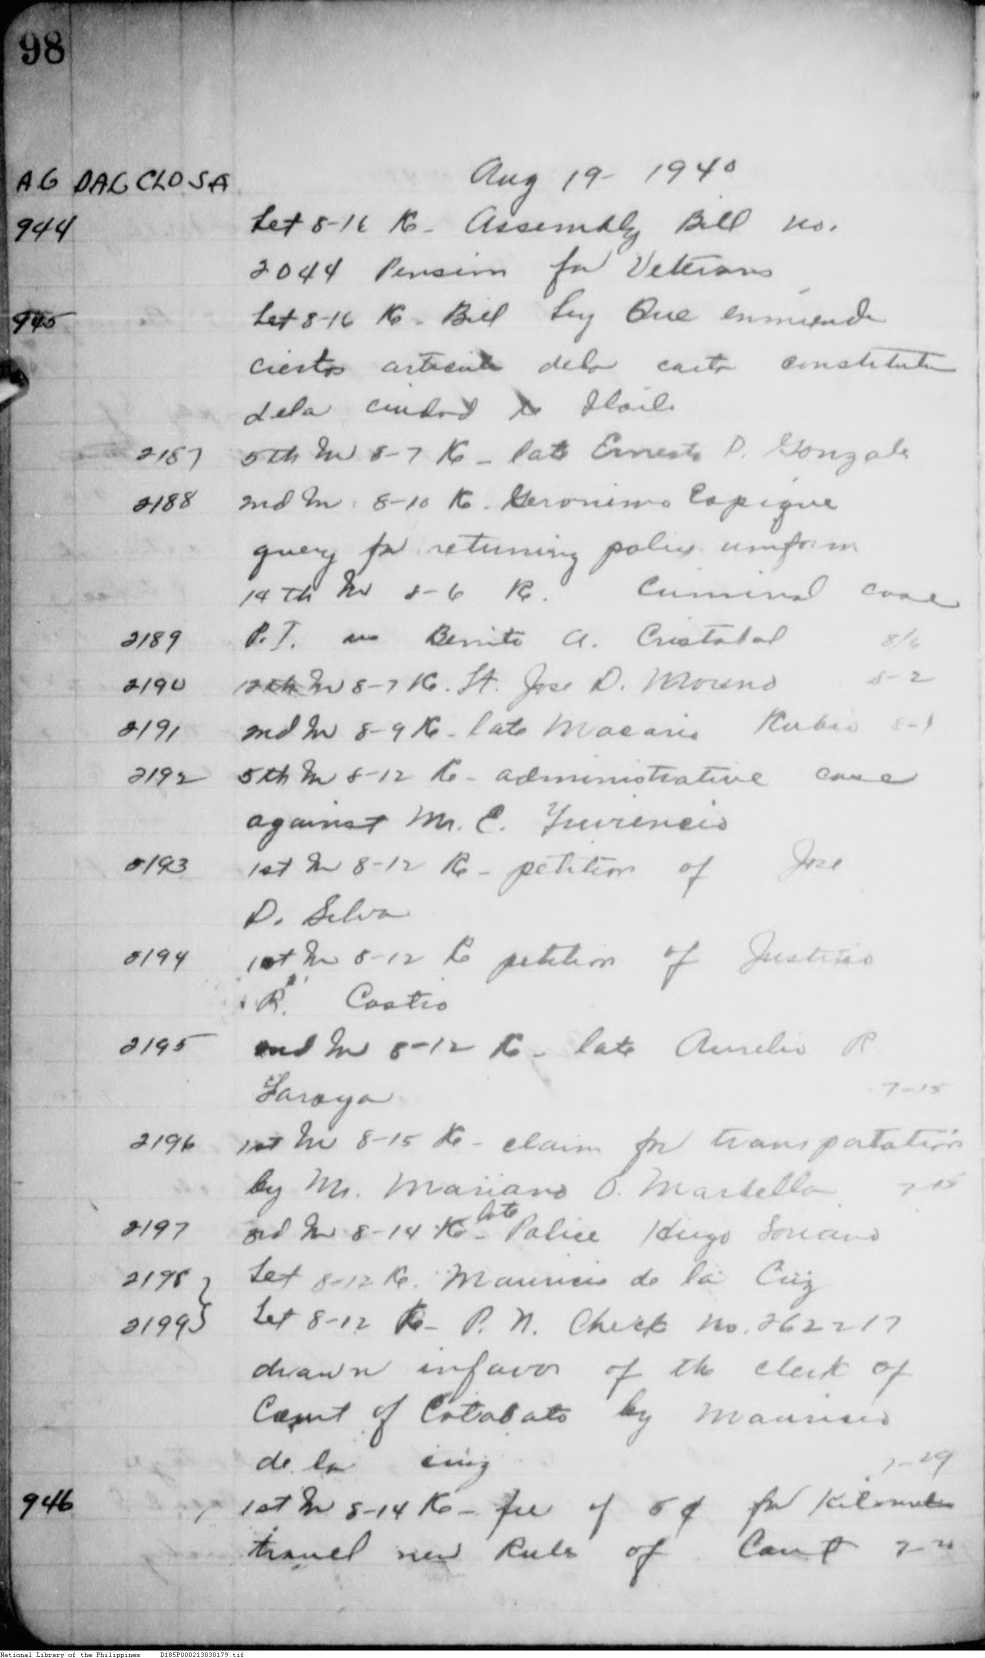 98
AG DAG CLD SA Aug 19 - 1940
944 Let 8-16 K - Assembly Bill no.
2044 Pension for Veterans
945 Let 8-16 K - Bill Ley Que enmienda
ciertos articulo dela carta
dela ciudad de Iloilo
2187 5th In 8-7 K - late Ernesto P. Gonzales
2188 2nd In 8-10 K - Geronimo Capique
query for returning police uniform
14th In 8-6 K. Criminal case
2189 P.I. vs Benito A. Cristobal 8/6
2190 12th In 8-7 K. Lt. Jose D. Moreno 8-2
2191 2nd In 8-9 K - late Macario Rubio
2192 5th In 8-12 K - administrative case
against Mr. C.
2193 1st In 8-12 K - petition of Jose
D. Silva
2194 1st In 8-12 K petition of Justino
R. Castro
2195 2nd In 8-12 K - late Aurelio R
7-15
2196 1st In 8-15 K - claim for transportation
by Mr. Mariano O. Marbella 7-15
2197 3rd In 8-14 K - late Police Hugo Soriano
2198 Let 8-12 K. Mauricio de la Cruz
2199 Let 8-12 K - P. N. Check No. 262217
drawn infavor of the clerk of
Court of Cotabato by Mauricio
de la cruz 7-29
946 1st In 8-14 K - fee of 5¢ for Kilometer
travel new Rules of Court
National Library of the Philippines D185P000213030179.tif